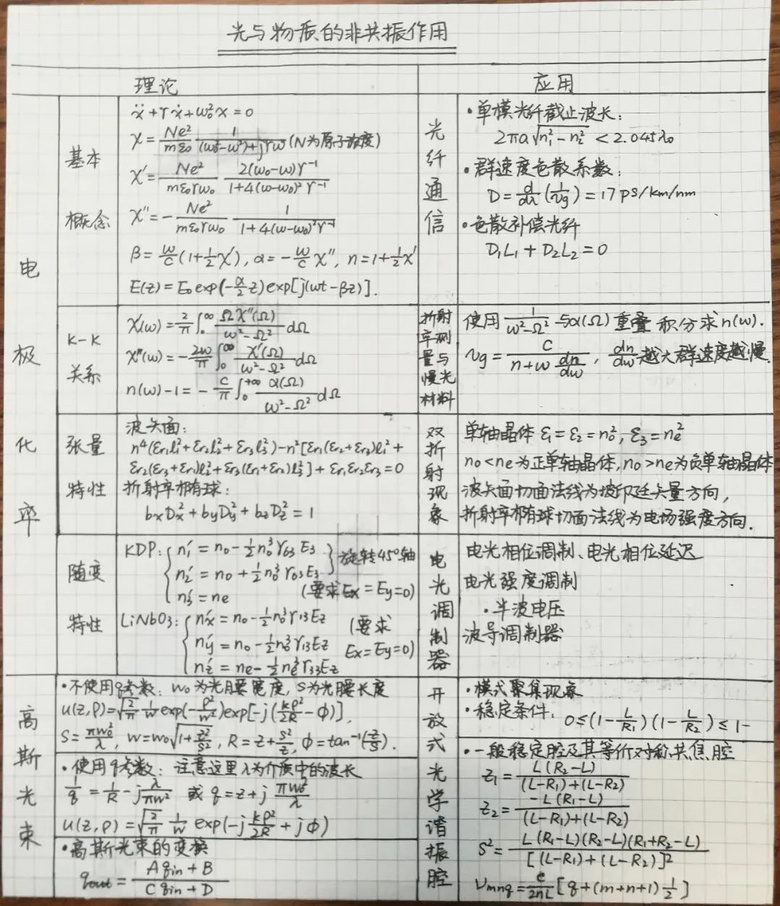 光与物质的非共振作用
理论
应用
电极化率
基本概念
ẍ+γẋ+ω₀²x=0
χ=Ne²/mε₀ · 1/((ω₀²-ω²)+jγω) (N为原子浓度)
χ'=Ne²/mε₀γω₀ · 2(ω₀-ω)γ⁻¹/(1+4(ω-ω₀)²γ⁻¹)
χ''=-Ne²/mε₀γω₀ · 1/(1+4(ω-ω₀)²γ⁻¹)
β=ω/c(1+½χ'), α=-ω/c χ'', n=1+½χ'
E(z)=E₀exp(-α/2 z)exp[j(ωt-βz)].
光纤通信
·单模光纤截止波长:
2πa√(n₁²-n₂²)<2.045λ₀
·群速度色散系数:
D=d/dλ(1/vg)=17PS/km/nm
·色散补偿光纤
D₁L₁+D₂L₂=0
K-K关系
χ'(ω)=2/π∫₀^∞ Ωχ''(Ω)/(ω²-Ω²) dΩ
χ''(ω)=-2ω/π∫₀^∞ χ'(Ω)/(ω²-Ω²) dΩ
n(ω)-1=-c/π∫₀^+∞ α(Ω)/(ω²-Ω²) dΩ
折射率测量与慢光材料
使用1/(ω²-Ω²)与α(Ω)重叠积分求n(ω).
vg=c/(n+ω dn/dω), dn/dω越大群速度越慢.
张量特性
波矢面:
n⁴(εr₁l₁²+εr₂l₂²+εr₃l₃²)-n²[εr₁(εr₂+εr₃)l₁²+
εr₂(εr₃+εr₁)l₂²+εr₃(εr₁+εr₂)l₃²]+εr₁εr₂εr₃=0
折射率椭球:
bxDx²+byDy²+bzDz²=1
双折射现象
单轴晶体ε₁=ε₂=n₀², ε₃=ne²
n₀<ne为正单轴晶体,n₀>ne为负单轴晶体
波矢面切面法线为坡印廷矢量方向,
折射率椭球切面法线为电场强度方向.
随变特性
KDP: n₁'=n₀-½n₀³γ₆₃E₃
n₂'=n₀+½n₀³γ₆₃E₃ }旋转45°轴
n₃'=ne (要求Ex=Ey=0)
LiNbO₃: nx'=n₀-½n₀³γ₁₃Ez (要求
ny'=n₀-½n₀³γ₁₃Ez Ex=Ey=0)
nz'=ne-½ne³γ₃₃Ez
电光调制器
电光相位调制、电光相位延迟
电光强度调制
·半波电压
波导调制器
高斯光束
·不使用q参数: w₀为光腰宽度, S为光腰长度
u(z,ρ)=√(2/π) 1/w exp(-ρ²/w²)exp[-j(kρ²/2R-φ)],
S=πw₀²/λ, w=w₀√(1+z²/S²), R=z+S²/z, φ=tan⁻¹(z/S).
·使用q参数: 注意这里λ为介质中的波长
1/q=1/R-jλ/πw² 或 q=z+jπw₀²/λ
u(z,ρ)=√(2/π) 1/w exp(-jkρ²/2R+jφ)
·高斯光束的变换
qout=(Aqin+B)/(Cqin+D)
开放式光学谐振腔
·模式聚集现象
·稳定条件: 0≤(1-L/R₁)(1-L/R₂)≤1-
·一般稳定腔及其等价对称共焦腔
z₁=L(R₂-L)/((L-R₁)+(L-R₂))
z₂=-L(R₁-L)/((L-R₁)+(L-R₂))
S²=L(R₁-L)(R₂-L)(R₁+R₂-L)/[(L-R₁)+(L-R₂)]²
νmnq=c/2nL[q+(m+n+1)½]